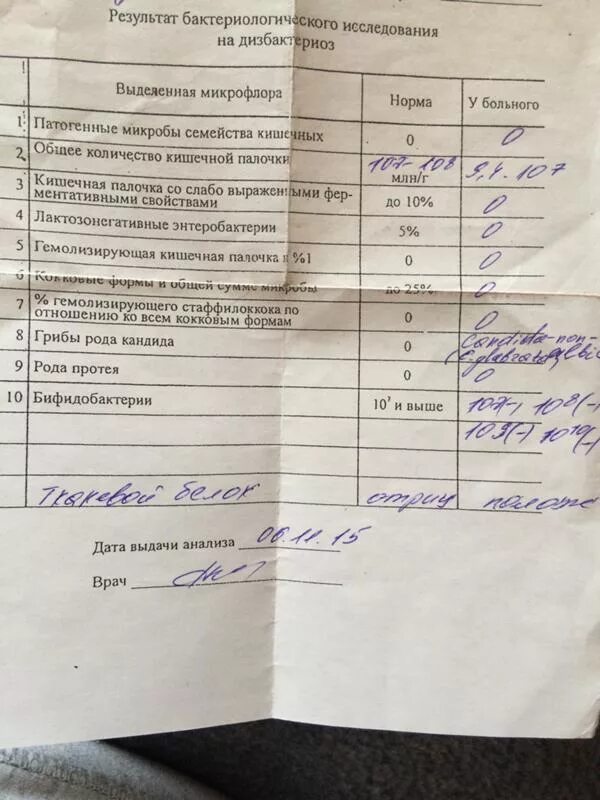 Результат бактериологического исследования
на дизбактериоз
! Выделенная микрофлора Норма У больного
1 Патогенные микробы семейства кишечных 0 0
2. Общее количество кишечной палочки 107-108 млн/г 9,4.107
3 Кишечная палочка со слабо выраженными фер-
ментативными свойствами до 10% 0
4 Лактозонегативные энтеробактерии 5% 0
5 Гемолизирующая кишечная палочка в %1 0 0
6 Кокковые формы и общей сумме микробы до 25% 0
7 % гемолизирующего стаффилоккока по
отношению ко всем кокковым формам 0 0
8 Грибы рода кандида 0 Candida-non-
(C. glabrata)
9 Рода протея 0 0
10 Бифидобактерии 10⁷ и выше 107(-) 108(-)
109(-) 1010(-)
Тканевой белок отриц полож
Дата выдачи анализа 06.11.15
Врач